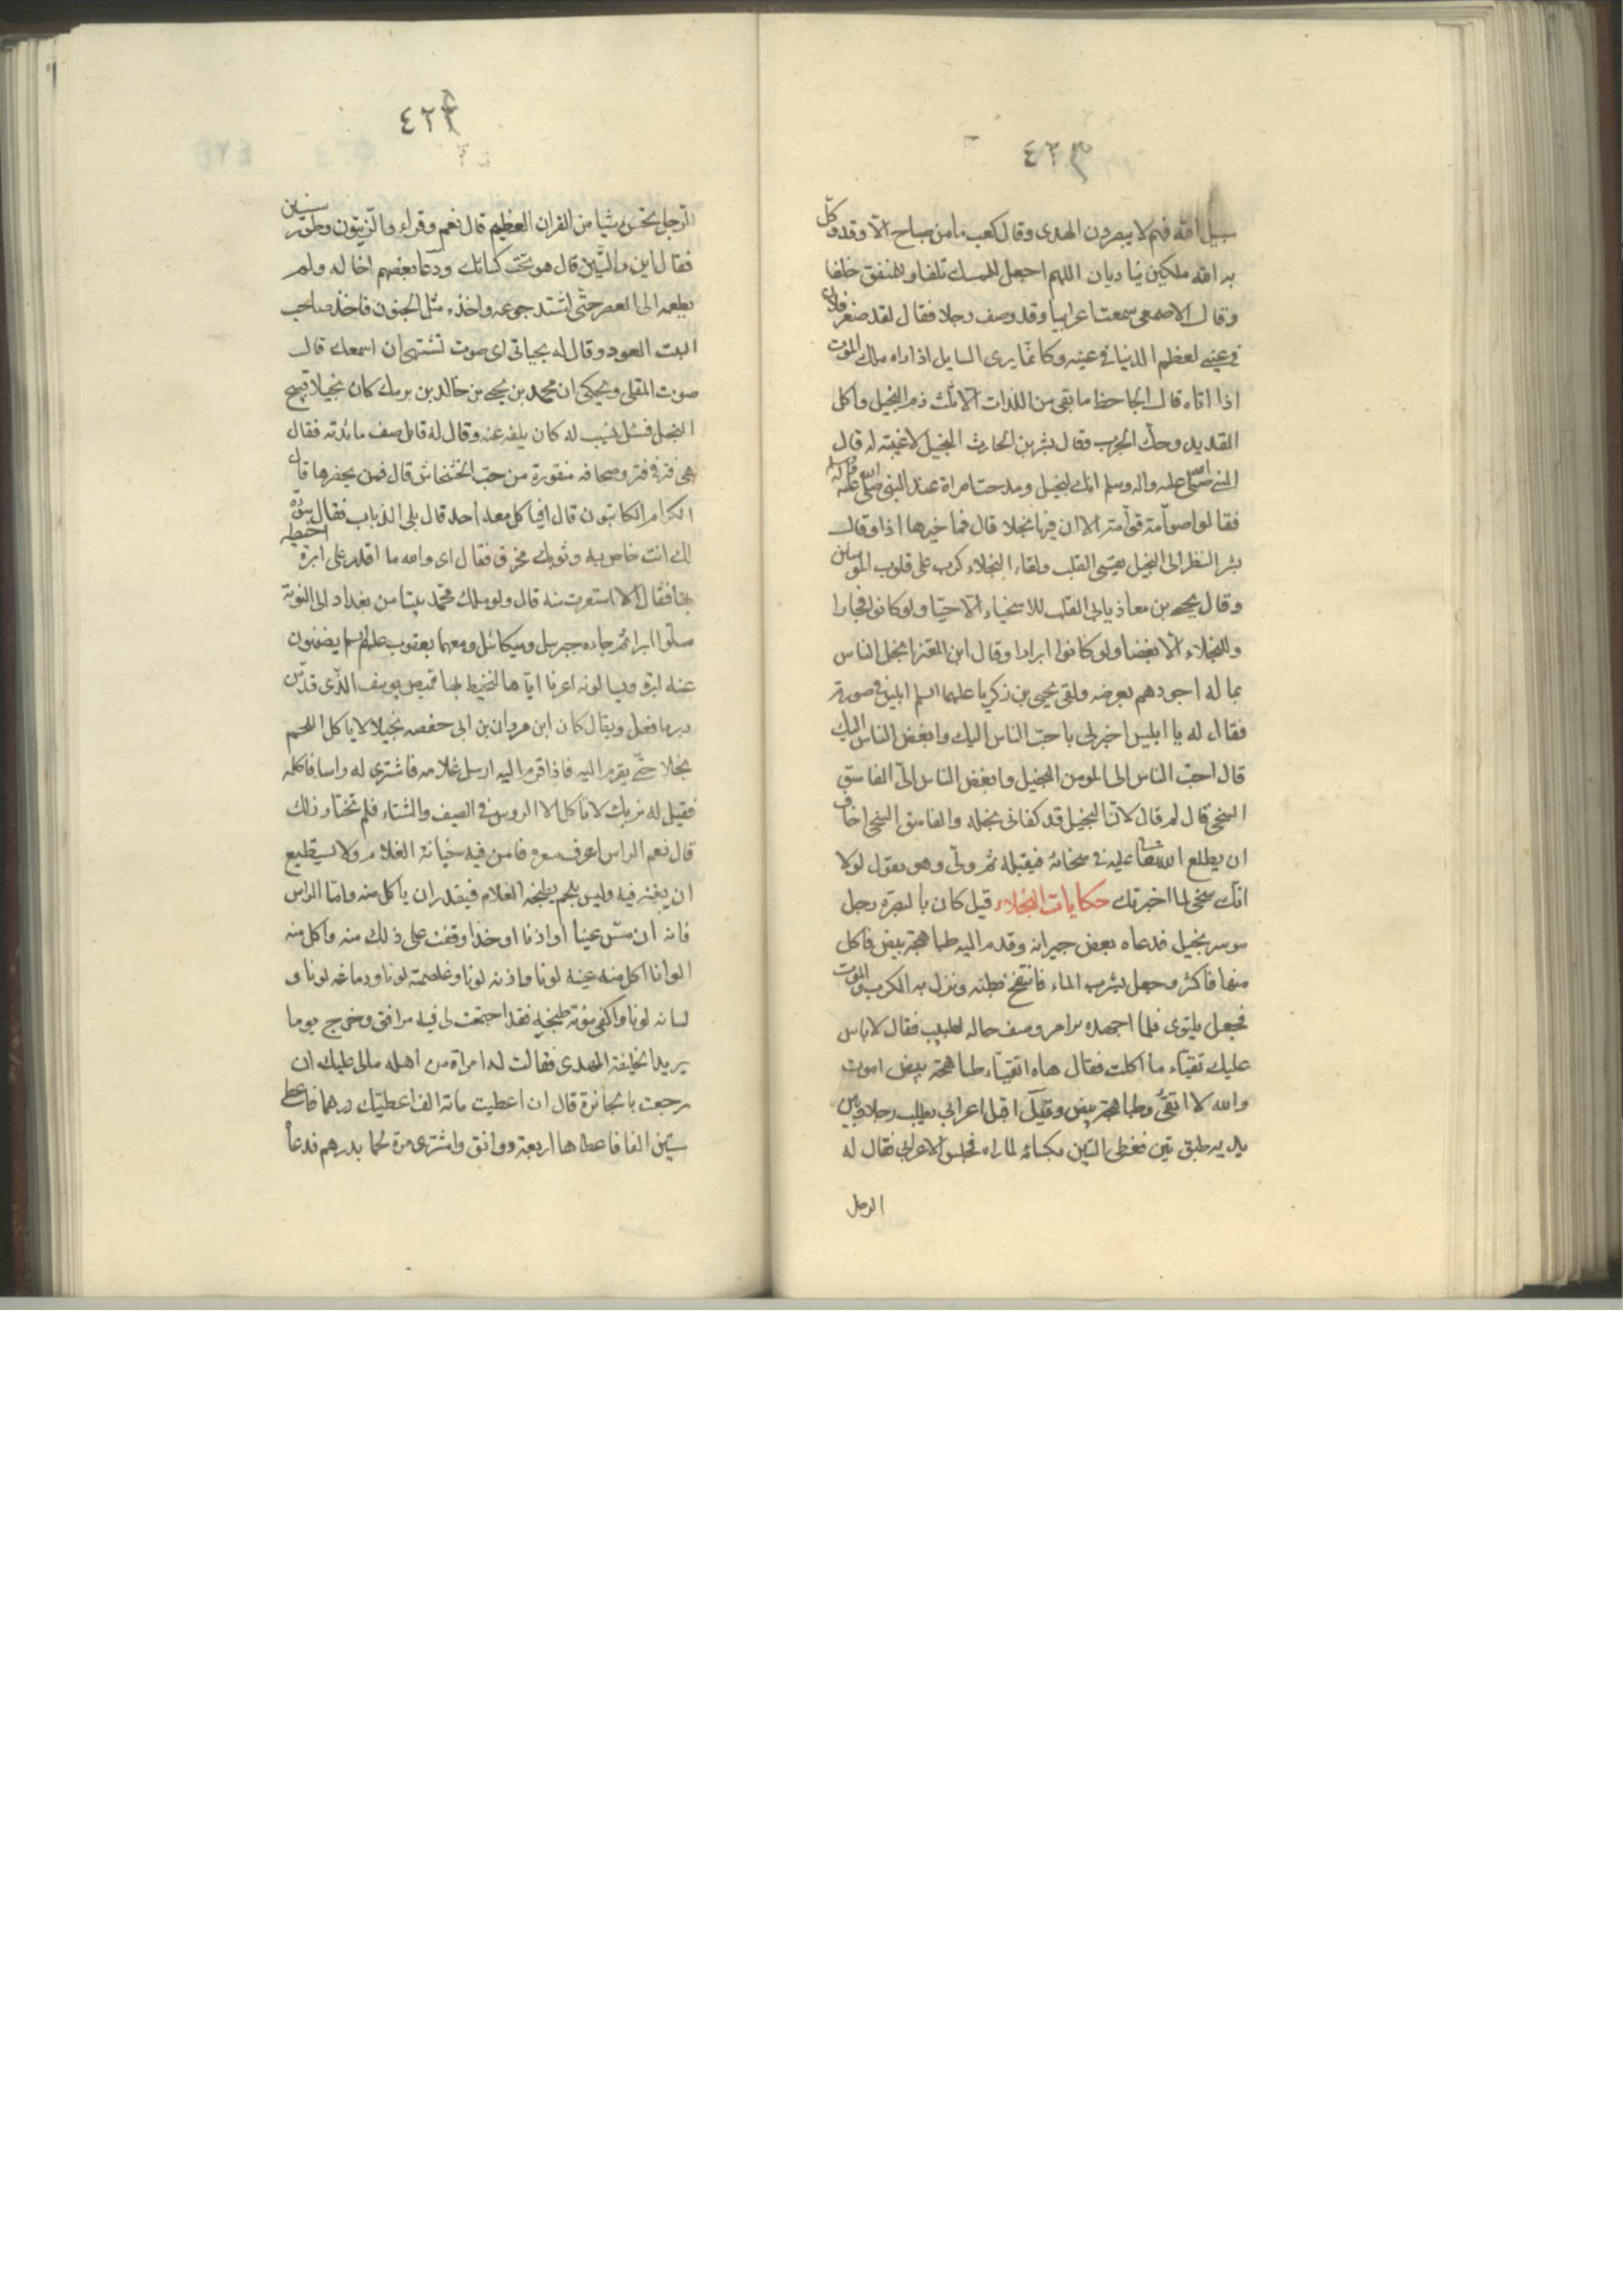 ٤٢٣
سبيل الله فهم لا يبصرون الهدى وقال كعب ما من صباح الا وقد وكل
به الله ملكين يناديان اللهم اجعل لممسك تلفا ولمنفق خلفا
وقال الاصمعي سمعت اعرابيا وقد وصف رجلا فقال لقد صغر فلان
في عيني لعظم الدنيا في عينه وكانما يرى السايل اذا اراه ملك الموت
اذا اتاه قال الجاحظ ما بقى من اللذات الا ثلث ذم البخيل واكل
القديد وحك الجرب وقال بشر بن الحارث البخيل لا غيبة له قال
النبي صلى الله عليه واله وسلم انك لبخيل ومدحت امراة عند النبي صلى الله عليه واله
فقالوا صوامة قوامة الا ان فيها بخلا قال فما خيرها اذا وقال
بشر النظر الى البخيل يقسى القلب ولقاء البخلاء كرب على قلوب المومنين
وقال يحيى بن معاذ يابى القلب للاسخياء الا حبا ولو كانوا فجارا
وللبخلاء الا بغضا ولو كانوا ابرارا وقال ابن المعتز ابخل الناس
بماله اجودهم بعرضه ولقى يحيى بن زكريا عليهما السلم ابليس في صورته
فقال له يا ابليس اخبرني باحب الناس اليك وابغض الناس اليك
قال احب الناس الى المومن البخيل وابغض الناس الى الفاسق
السخي قال لم قال لان البخيل قد كفاني بخله والفاسق السخي اخاف
ان يطلع الله تعالى عليه في سخائه فيقبله ثم ولى وهو يقول لولا
انك سخي لما اخبرتك حكايات البخلاء قيل كان بالبصرة رجل
موسر بخيل فدعاه بعض جيرانه وقدم اليه طباهجة ببيض فاكل
منها فاكثر وجعل يشرب الماء فانتفخ بطنه ونزل به الكرب والموت
فجعل يلتوى فلما اجهده الامر وصف حاله لطبيب فقال لا باس
عليك تقيئاء ما اكلت فقال هاه اتقيئاء طباهجة ببيض اموت
والله لا اتقيئ وطباهجة ببيض وقيل اقبل اعرابي يطلب رجلا وبين
يديه طبق تين فغطى التين بكسائه لما راه فجلس الاعرابي فقال له
الرجل
٤٢٤
الرجل تحسن شيئا من القران العظيم قال نعم وقراء والزيتون وطور سنين
فقال اين والتين قال هو تحت كسائك ودعا بعضهم اخا له ولم
يطعمه الى العصر حتى اشتد جوعه واخذه مثل الجنون فاخذ صاحب
البيت العود وقال له بحياتي اى صوت تشتهى ان اسمعك قال
صوت المقلى ويحكى ان محمد بن يحيى بن خالد بن برمك كان بخيلا قبيح
البخل فسئل نسيب له كان يلفه عنه وقال له قائل صف مائدته فقال
هى فتر في فتر وصحافه منقورة من حب الخشخاش قال فمن يحضرها قال
الكرام الكاتبون قال افيا كل معه احد قال بلى الذباب فقال سوءة
لك انت خاص به وثوبك مخرق فقال اى والله ما اقدر على ابرة اخيطه
بها فقال الا استعرت منه قال ولو ملك محمد بيتا من بغداد الى النوبة
مملوا ابرا ثم جاءه جبريل وميكائيل ومعهما يعقوب عليهم السلم يضمنون
عنه ابرة ويسالونه اعرنا اياها لنخيط بها قميص يوسف الذى قد من
دبر ما فعل ويقال كان ابن مروان بن ابي حفصه بخيلا لا ياكل اللحم
بخلا حتى يقرم اليه فاذا قرم اليه ارسل غلامه فاشترى له راسا فاكله
فقيل له نريك لا تاكل الا الروس في الصيف والشتاء فلم تختار ذلك
قال نعم الراس اعرف سعره فامن فيه خيانة الغلام ولا يستطيع
ان يغبن فيه وليس بلحم يطبخه الغلام فيقدر ان ياكل منه واما الراس
فانه ان مس عينا او اذنا او خدا وقفت على ذلك منه واكل منه
الوانا اكل منه عينه لونا واذنه لونا وغلصمته لونا ودماغه لونا و
لسانه لونا واكفى مؤنة طبخه فقد اجتمعت لى فيه مرافق وخرج يوما
يريد الخليفة المهدى فقالت له امراة من اهله مالى عليك ان
رجعت بالجائزة قال ان اعطيت مائة الف اعطيتك درهما فاعطى
ستين الفا فاعطاها اربعة دوانق واشترى مرة لحما بدرهم فدعاه